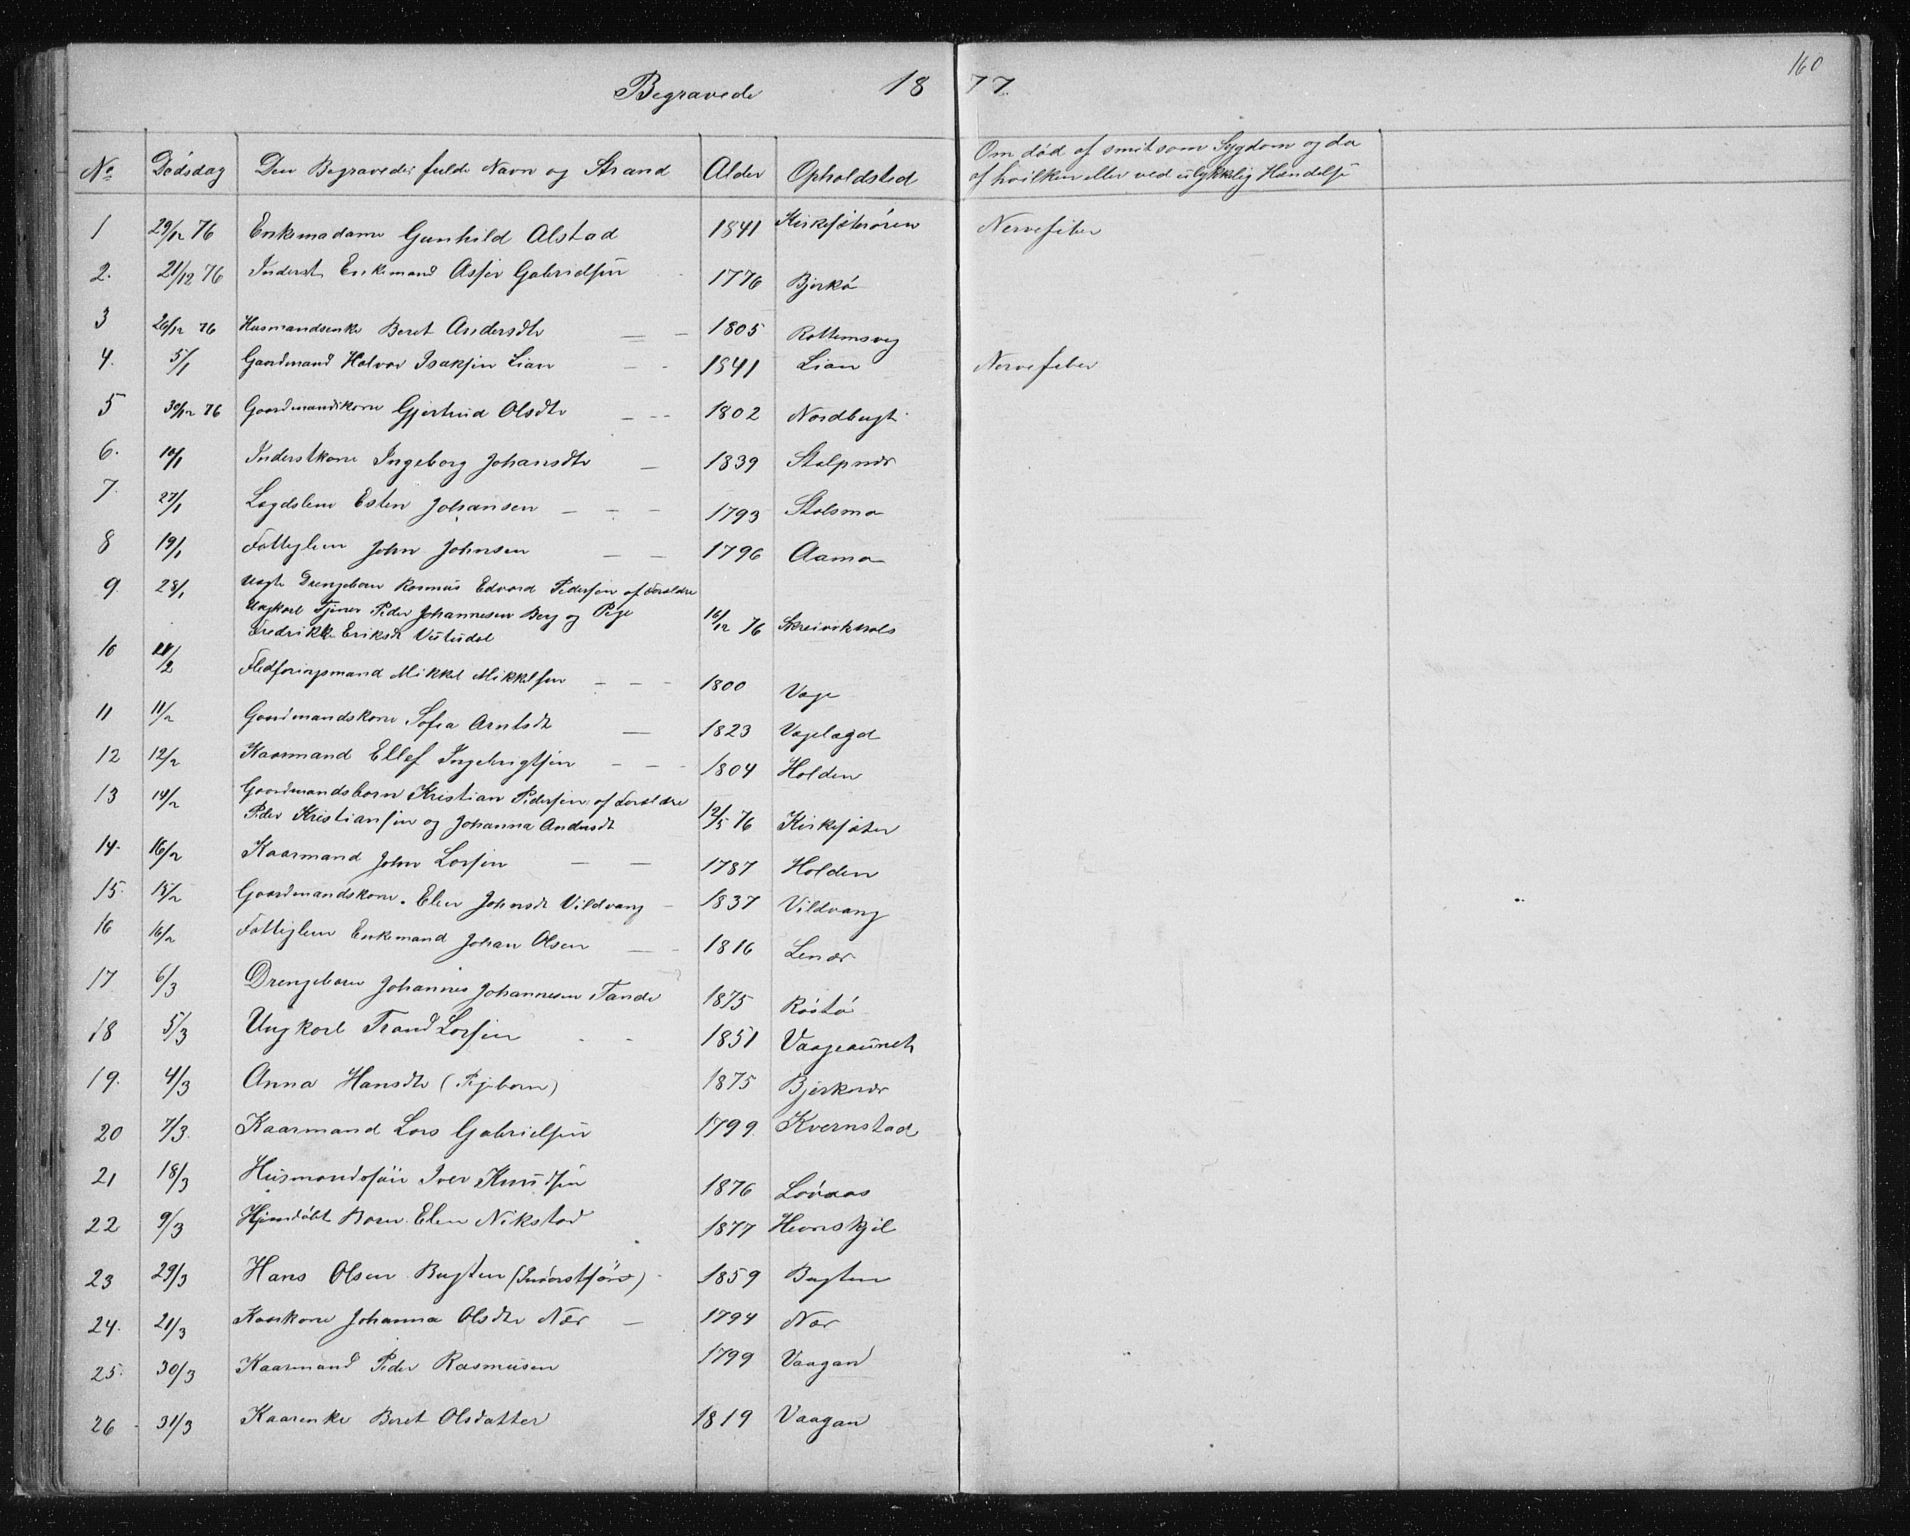 160
Begravede 1877.
No Dødsdag Den Begravedes fulde Navn og Strand Alder Opholdsted Om død af smitsom Sygdom og da
af hvilken eller ved ulykkelig Hændelse
1 29/12 76 Enkemadame Gunhild Alstad 1841 Kirkesæterøren Nervefeber
2. 21/12 76 Inderst Enkemand Asser Gabrielsen 1776 Bjerkø
3 26/12 76 Husmandsenke Beret Andersdtr 1805 Rottemsveg
4. 5/1 Gaardmand Halvor Isaksen Lian 1841 Lian Nervefeber
5 30/12 76 Gaardmandskone Gjertrud Olsdtr 1802 Nordbugt
6. 10/1 Inderstkone Ingeborg Johansdtr 1839 Stolpnær
7. 27/1 Lægdslem Esten Johansen 1793 Stolsmo
8 19/1 Fattiglem John Johnsen 1796 Aamo
9. 28/1 uægte Drengebarn Rasmus Edvard Pedersen af Forældre
Ungkarl Tjener Peder Johannesen Berg og Pige
Fredrikke Eriksdt 16/12 76
10 /2 Fledføringsmand Mikkel Mikkelsen 1800 Vage
11 11/2 Gaardmandskone Sofia Arntsdt 1823 Vagelægd
12 12/2 Kaarmand Ellef Ingebrigtsen 1804 Holden
13 14/2 Gaardmandsbarn Kristian Pedersen af Forældre
Peder Kristiansen og Johanna Andersdt 12/5 76 Kirkesæter
14. 16/2 Kaarmand John Larsen 1787 Holden
15. 15/2 Gaardmandskone Elen Johnsdt Vildvang 1837 Vildvang
16 16/2 Fattiglem Enkemand Johan Olsen 1816 Lenær
17 6/3 Drengebarn Johannes Johannesen Tande 1875 Røstø
18 5/3 Ungkarl Trond Larsen 1851 Vaageaunet
19. 4/3 Anna Hansdtr (Pigebarn) 1875 Bjerkenær
20 7/3. Kaarmand Lars Gabrielsen 1799. Kvernstad
21 18/3 Husmandssøn Iver Knudsen 1876 Løvaas
22 9/3 Hjemdøbt Barn Elen Nikstad 1877 Hevnskjel
23 29/3 Hans Olsen Bugten (Inderstsøn) 1859 Bugten
24. 21/3 Kaarkone Johanna Olsdtr Nær 1794 Nær
25. 30/3 Kaarmand Peder Rasmusen 1799 Vaagan
26 31/3 Kaarenke Beret Olsdatter 1819 Vaagan